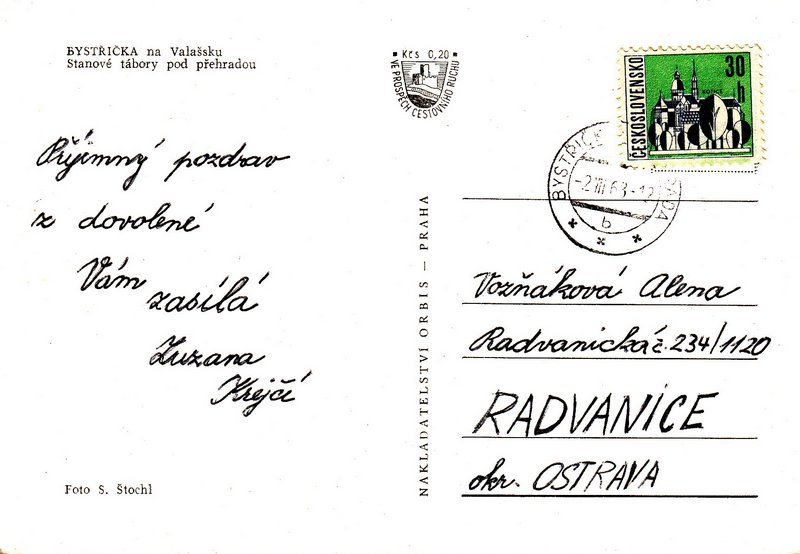 BYSTŘIČKA na Valašsku
Stanové tábory pod přehradou
Kčs 0,20
VE PROSPĚCH CESTOVNÍHO RUCHU
ČESKOSLOVENSKO
30 h
KOŠICE
Příjemný pozdrav
z dovolené
Vám
zasílá
Zuzana
Krejčí
NAKLADATELSTVÍ ORBIS — PRAHA
Vozňáková Alena
Radvanická č. 234/1120
RADVANICE
okr. OSTRAVA
Foto S. Štochl